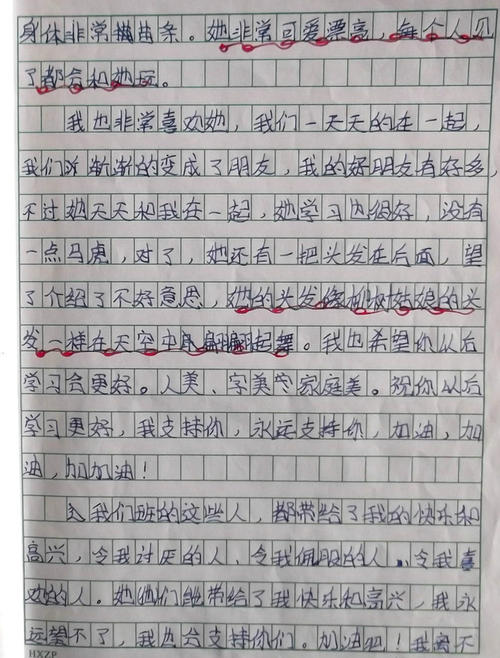 身体非常描苗条。她非常可爱漂亮，每个人见
了都会和她玩。
我也非常喜欢她，我们一天天的在一起，
我们渐渐的变成了朋友，我的好朋友有好多，
不过她天天和我在一起，她学习也很好，没有
一点马虎，对了，她还有一把头发在后面，望
了介绍了不好意思，她的头发像柳树姑娘的头
发一样在天空中翩翩起舞。我也希望你以后
学习会更好。人美、字美、家庭美。祝你以后
学习更好，我支持你，永远支持你，加油，加
油，加加油！
我们班的这些人，都带给了我的快乐和
高兴，令我讨厌的人、令我佩服的人、令我喜
欢的人。她他们能带给了我快乐和高兴，我永
远望不了，我也会支持你们。加油吧！我离不
HXZP